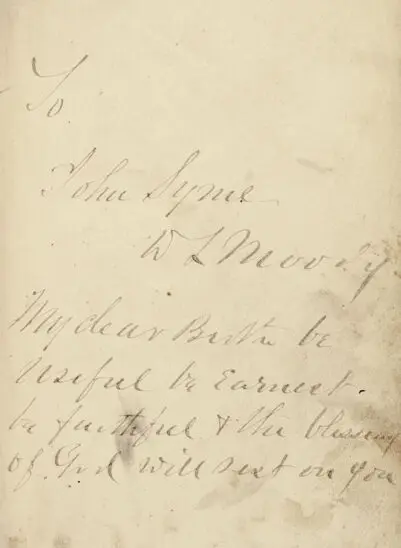 To
John Syme
D L Moody
My dear Broth be
Useful be Earnest.
be faithful & the blessing
of God will rest on you